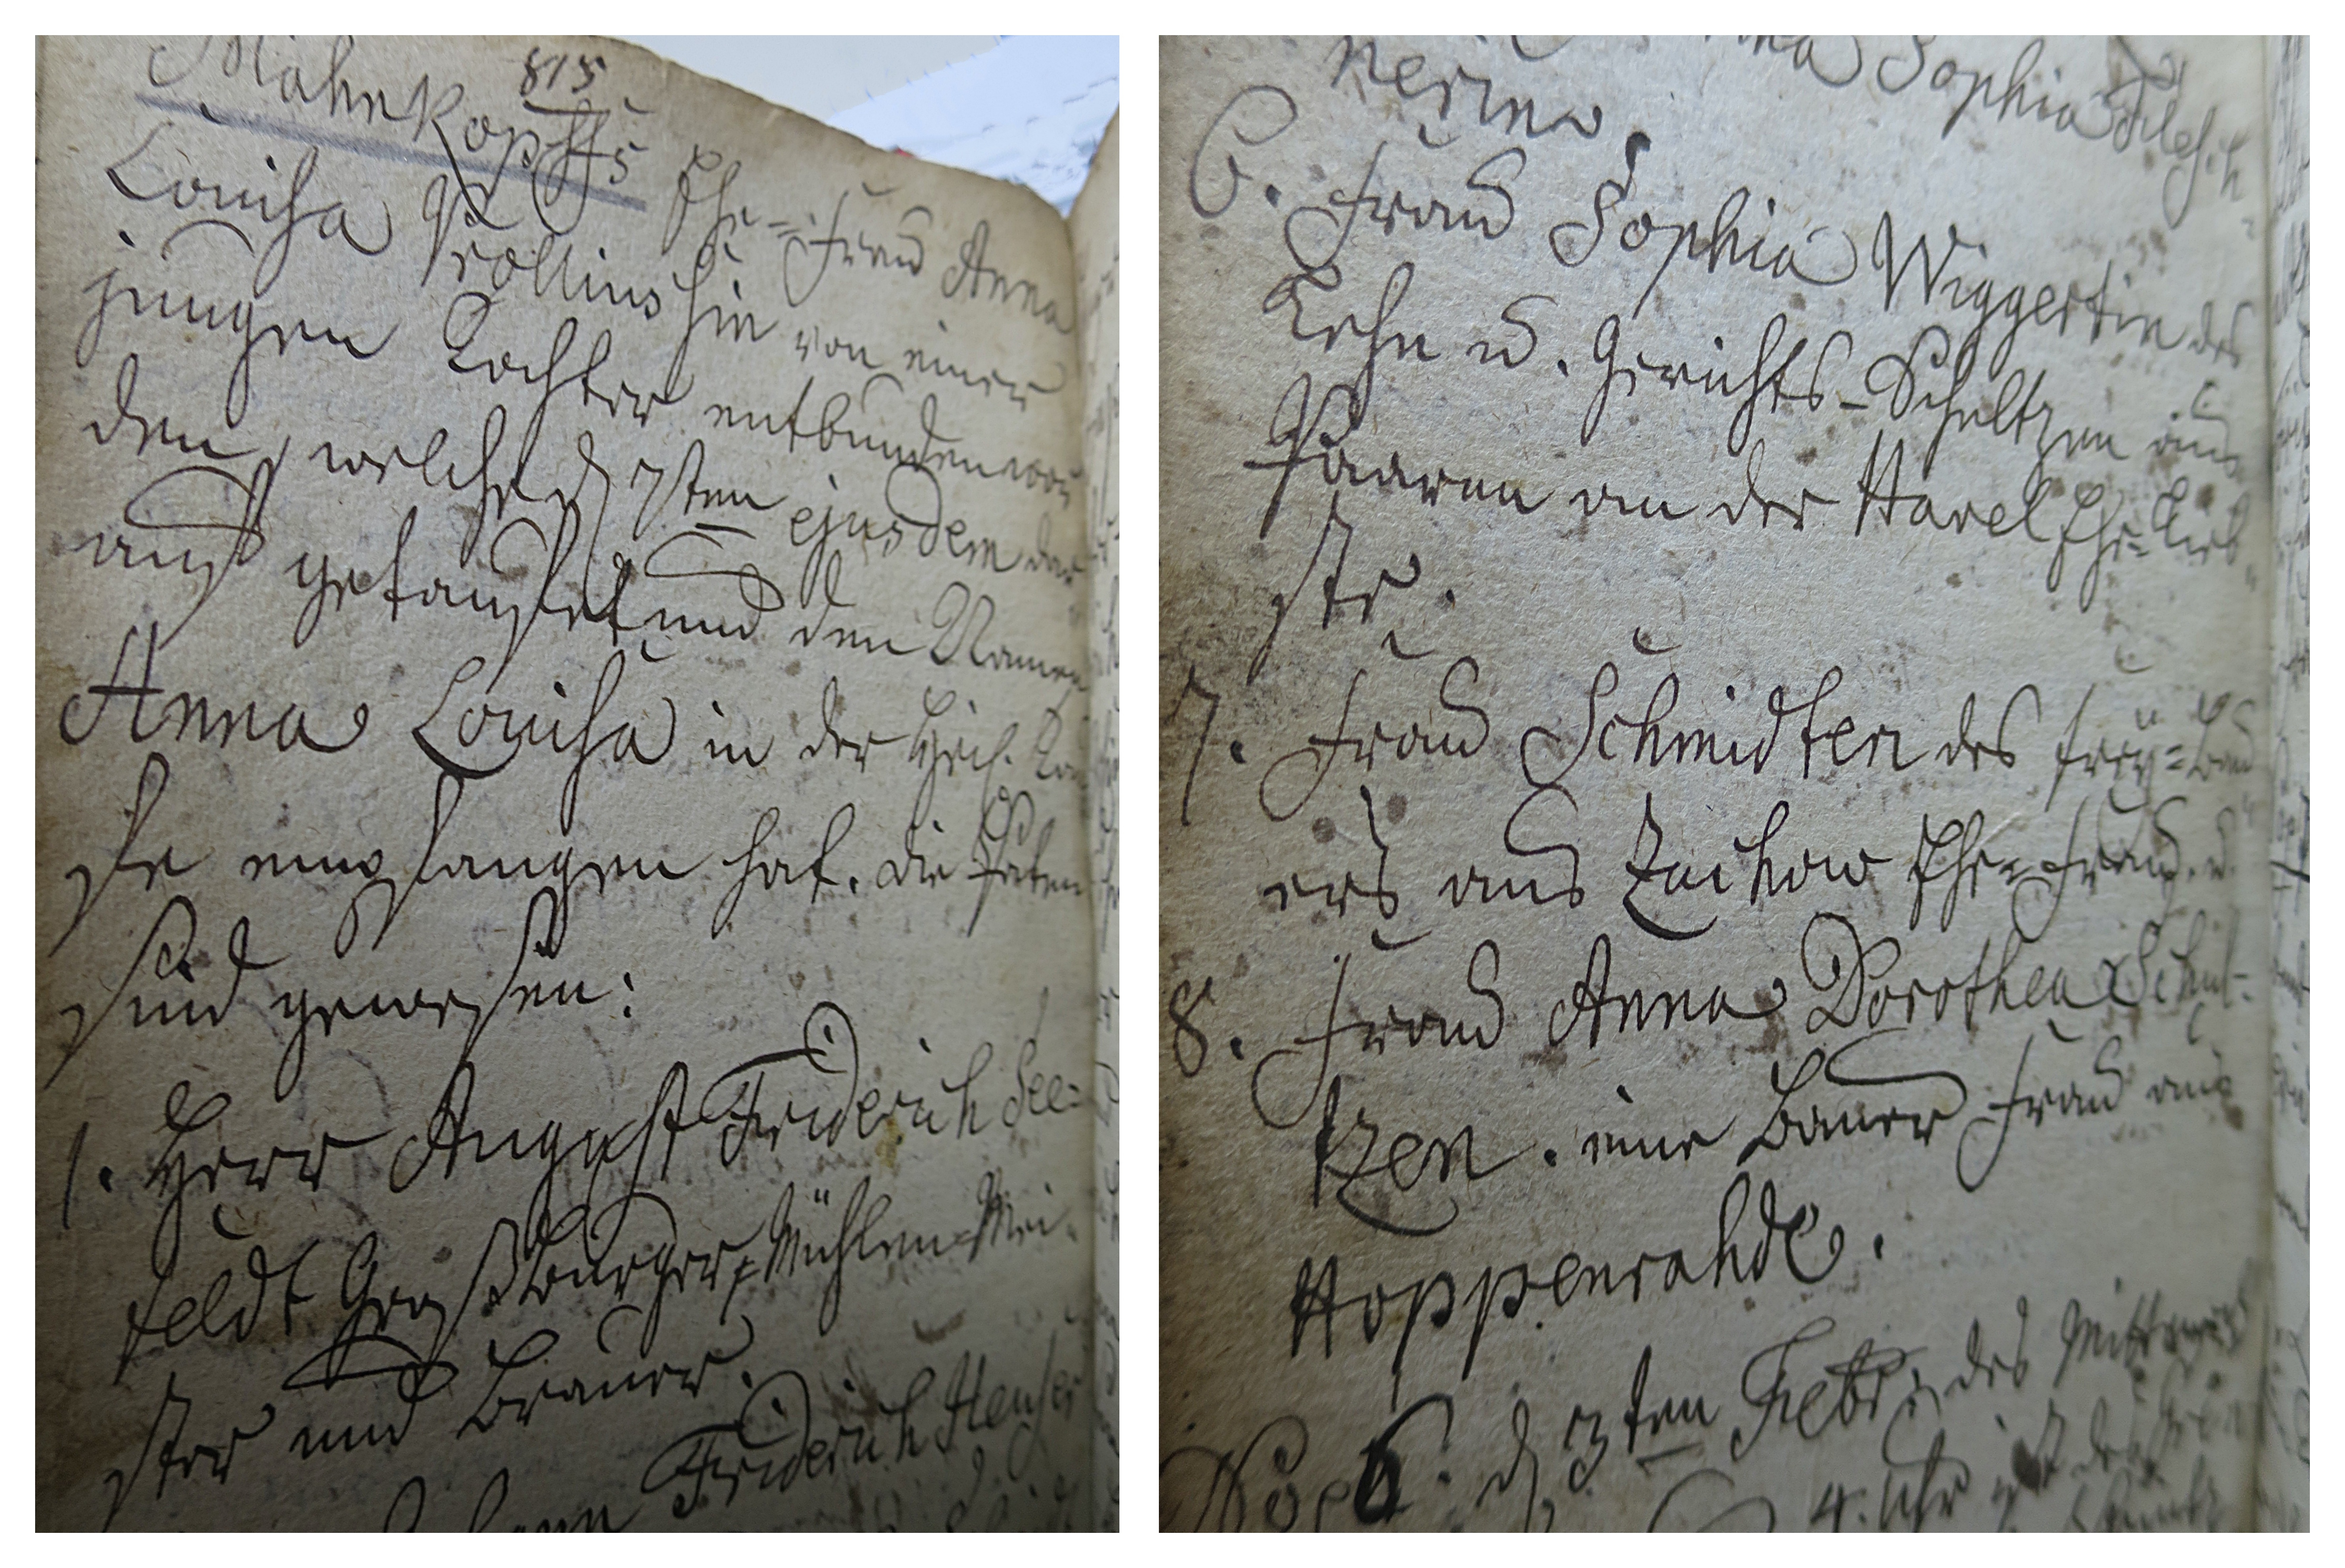 815
Mähnkopffs Ehe-Frau Anna
Louisa Prollius hin von einer
jungen Tochter entbunden wor
den, welche d 7ten ejusdem dar
auf getauffet und den Namen
Anna Louisa in der Heil. Tau
fe empfangen hat. die Paten
sind gewesen:
1. Herr August Friderich See=
feldt Großbürger, Mühlen-Mei
ster und Brauer.
Friderich
Sophia
nerinn.
6. Frau Sophia Wiggertin des
Lehn u. Gerichts-Schultzen aus
Paaren an der Havel Ehe-Lieb
ste.
7. Frau Schmidten des frey=Bau
ers aus Zachow Ehe=Frau. u.
8. Frau Anna Dorothea Schul-
tzen. eine Bauer Frau aus
Hoppenrahde.
6. d 3ten Febr. des Mittwochs
4. Uhr ist